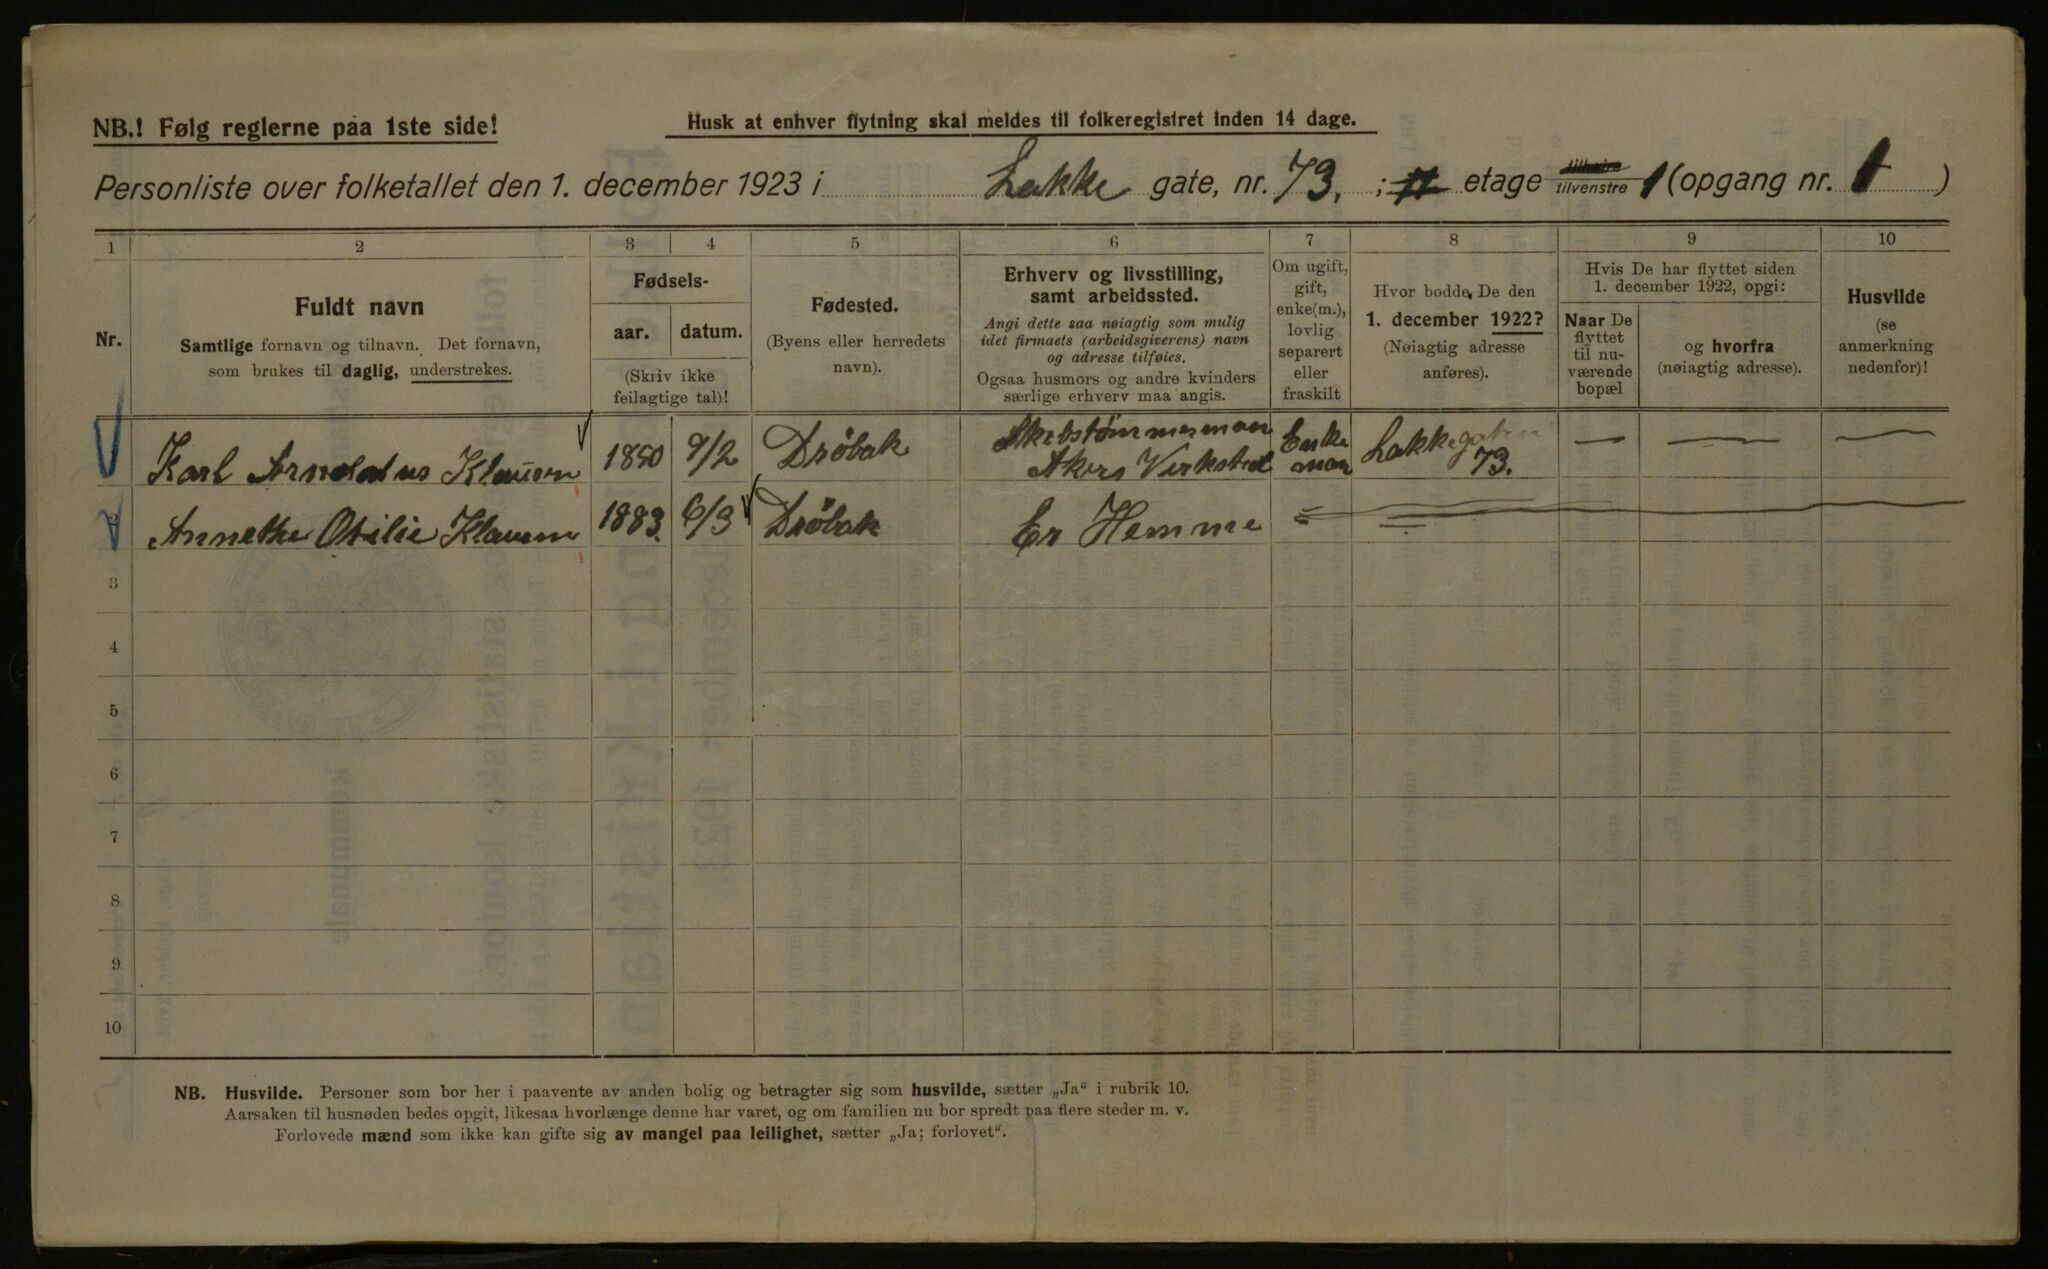 NB.! Følg reglerne paa 1ste side!
Husk at enhver flytning skal meldes til folkeregistret inden 14 dage.
Personliste over folketallet den 1. december 1923 i Lakke gate, nr. 73. ; etage tilhøire tilvenstre 1 (opgang nr. 1 )
1 2 3 4 5 6 7 8 9 10
Nr.
Fuldt navn
Samtlige fornavn og tilnavn. Det fornavn,
som brukes til daglig, understrekes.
Fødsels-
aar. datum.
(Skriv ikke
feilagtige tal)!
Fødested.
(Byens eller herredets
navn).
Erhverv og livsstilling,
samt arbeidssted.
Angi dette saa nøiagtig som mulig
idet firmaets (arbeidsgiverens) navn
og adresse tilføies.
Ogsaa husmors og andre kvinders
særlige erhverv maa angis.
Om ugift,
gift,
enke(m.),
lovlig
separert
eller
fraskilt
Hvor bodde De den
1. december 1922?
(Nøiagtig adresse
anføres).
Hvis De har flyttet siden
1. december 1922, opgi:
Naar De
flyttet
til nu-
værende
bopæl
og hvorfra
(nøiagtig adresse).
Husvilde
(se
anmerkning
nedenfor)!
Karl Arnoldus Klausen 1850 9/2 Drøbak Skibstømmerman Akers Verksted Enke man Lakkegaten 73. — — —
2 Annethe Otilie Klausen 1883. 6/3 Drøbak Er Hemme
3
4
5
6
7
8
9
10
NB. Husvilde. Personer som bor her i paavente av anden bolig og betragter sig som husvilde, sætter „Ja“ i rubrik 10.
Aarsaken til husnøden bedes opgit, likesaa hvorlænge denne har varet, og om familien nu bor spredt paa flere steder m. v.
Forlovede mænd som ikke kan gifte sig av mangel paa leilighet, sætter „Ja; forlovet“.